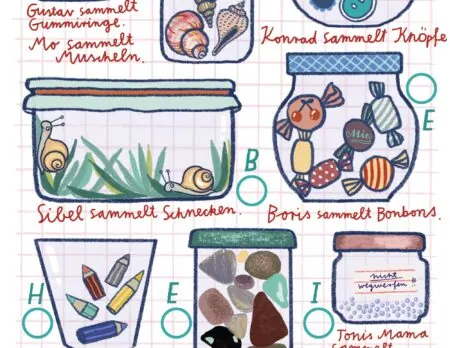 Gustav sammelt
Gummiringe.
Mo sammelt
Muscheln.
Konrad sammelt Knöpfe
E
Minz
B
Sibel sammelt Schnecken.
Boris sammelt Bonbons.
H
E
I
nicht
wegwerfen!!
Tonis Mama
sammelt